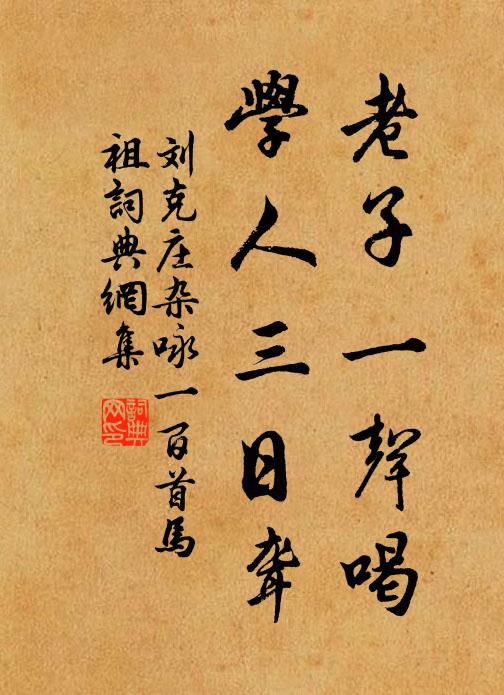 老子一聲喝
學人三日聾
刘克庄杂咏一百首馬
祖詞典網集
詞典網印